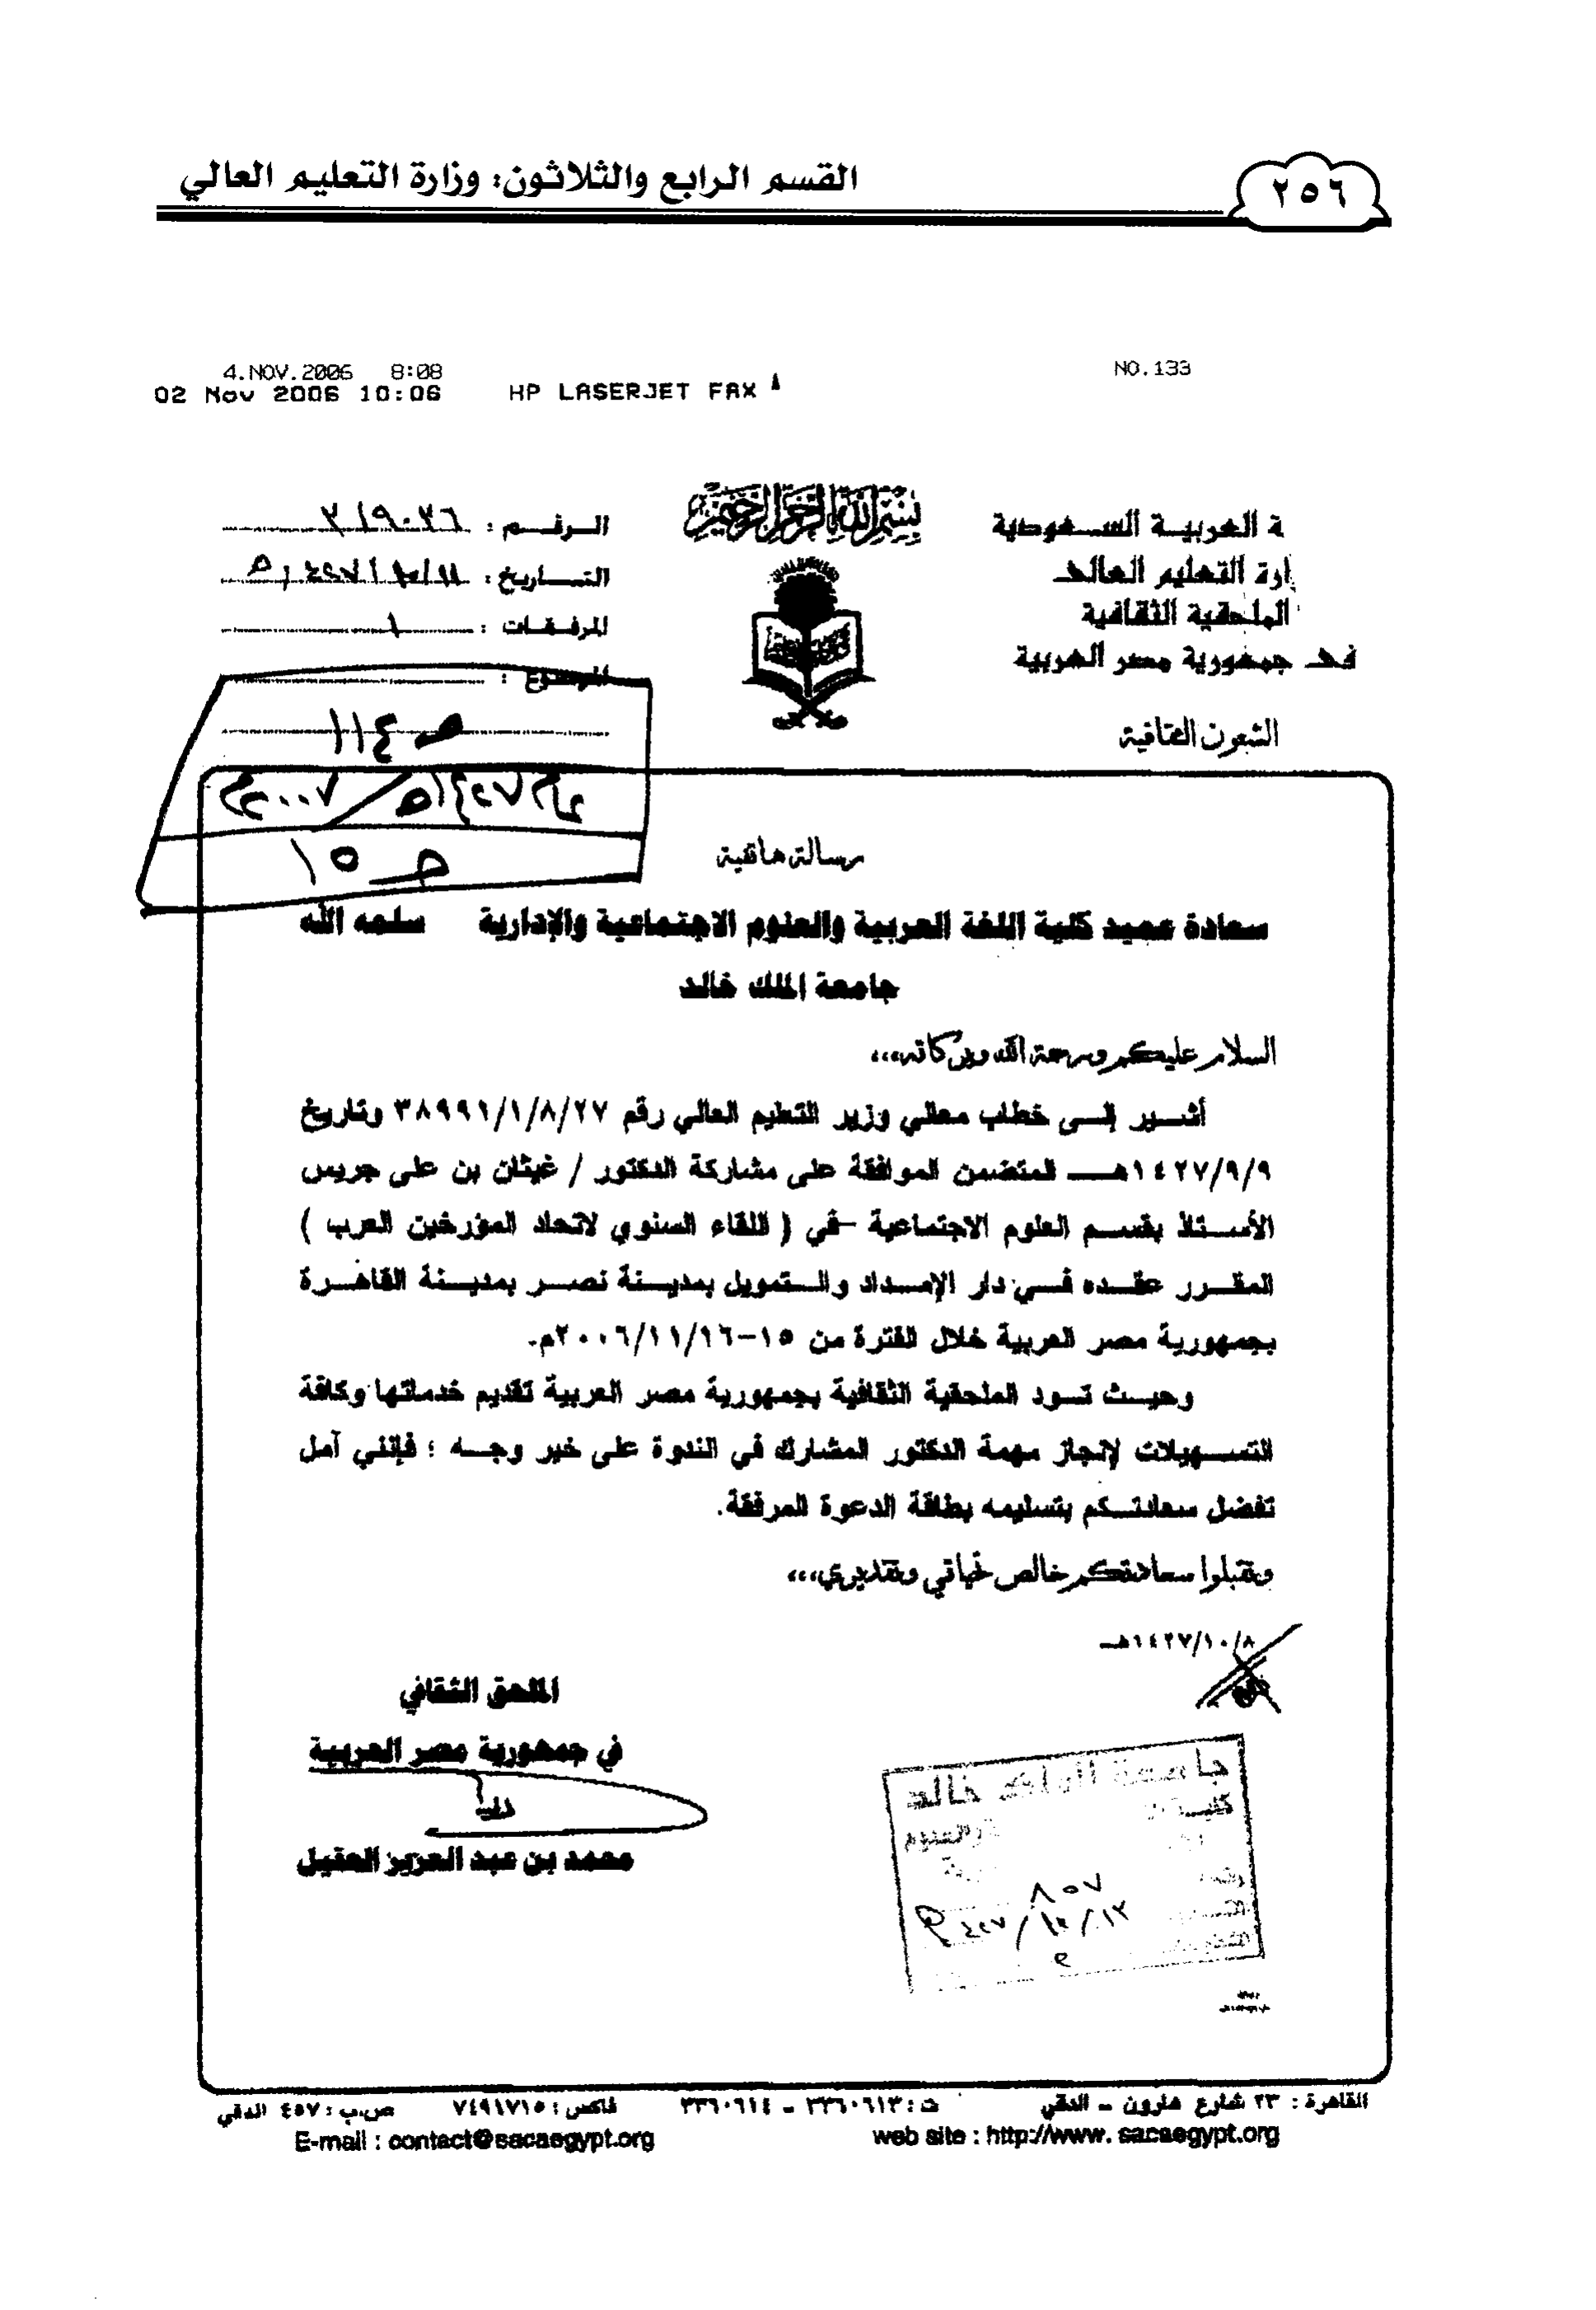 ٢٥٦
القسم الرابع والثلاثون: وزارة التعليم العالي
4.NOV.2006 8:08
NO.133
02 Nov 2006 10:06 HP LASERJET FAX
بسم الله الرحمن الرحيم
ة العربية السعودية
ارة التعليم العالي
الملحقية الثقافية
في جمهورية مصر العربية
الشئون الثقافية
الرقم : ٣/٩٠٣٦
التاريخ : ١١/١٠/٤٢٧ هـ
المرفقات : ١
الموضوع :
ص ١١٤
عام ١٤٢٧هـ / ٢٠٠٧م
ص ١٥
رسالة هاتفية
سعادة عميد كلية اللغة العربية والعلوم الاجتماعية والإدارية سلمه الله
جامعة الملك خالد
السلام عليكم ورحمة الله وبركاته،،،
أشير إلى خطاب معالي وزير التعليم العالي رقم ٣٨٩٩١/١/٨/٢٧ وتاريخ
١٤٢٧/٩/٩هـ المتضمن الموافقة على مشاركة الدكتور / غيثان بن على جريس
الأستاذ بقسم العلوم الاجتماعية -في ( اللقاء السنوي لاتحاد المؤرخين العرب )
المقرر عقده في دار الإمداد والتمويل بمدينة نصر بمدينة القاهرة
بجمهورية مصر العربية خلال الفترة من ١٥-٢٠٠٦/١١/١٦م.
وحيث تود الملحقية الثقافية بجمهورية مصر العربية تقديم خدماتها وكافة
التسهيلات لإنجاز مهمة الدكتور المشارك في الندوة على خير وجه ؛ فإنني آمل
تفضل سعادتكم بتسليمه بطاقة الدعوة المرفقة.
وتقبلوا سعادتكم خالص تحياتي وتقديري،،،
١٤٢٧/١٠/٨هـ
الملحق الثقافي
في جمهورية مصر العربية
محمد بن عبد العزيز العقيل
جامعة الملك خالد
كلية
والعلوم
٨٥٧
١٢/١٠/٤٢٧
القاهرة : ٢٣ شارع هارون - الدقي ت : ٣٣٦٠٦١٣ - ٣٣٦٠٦١٤ فاكس : ٧٤٩١٧١٥ ص.ب : ٤٥٧ الدقي
web site : http://www. sacaegypt.org E-mail : contact@sacaegypt.org